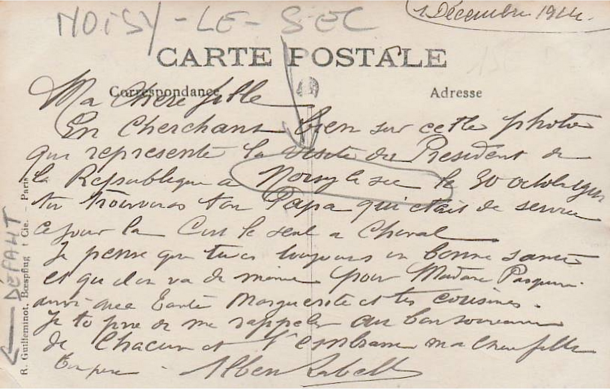 NOISY-LE-SEC
1 Décembre 1914
CARTE POSTALE
Correspondance
Adresse
Ma Chere fille
En Cherchant bien sur cette photo
qui represente la visite du President de
la Republique a Noisy le sec le 30 octobre
tu trouveras ton Papa qui etait de service
ce jour la C'est le seul a Cheval
Je pense que tu es toujours en bonne santé
et qu'il en va de meme pour Madame
ainsi que tante Marguerite et tes cousines.
Je te prie de me rappeler au bon souvenir
de Chacun et t'embrasse ma chere fille
Ton pere Albert
R. Guilleminot, Bœspflug et Cie. Paris
DÉFAUT